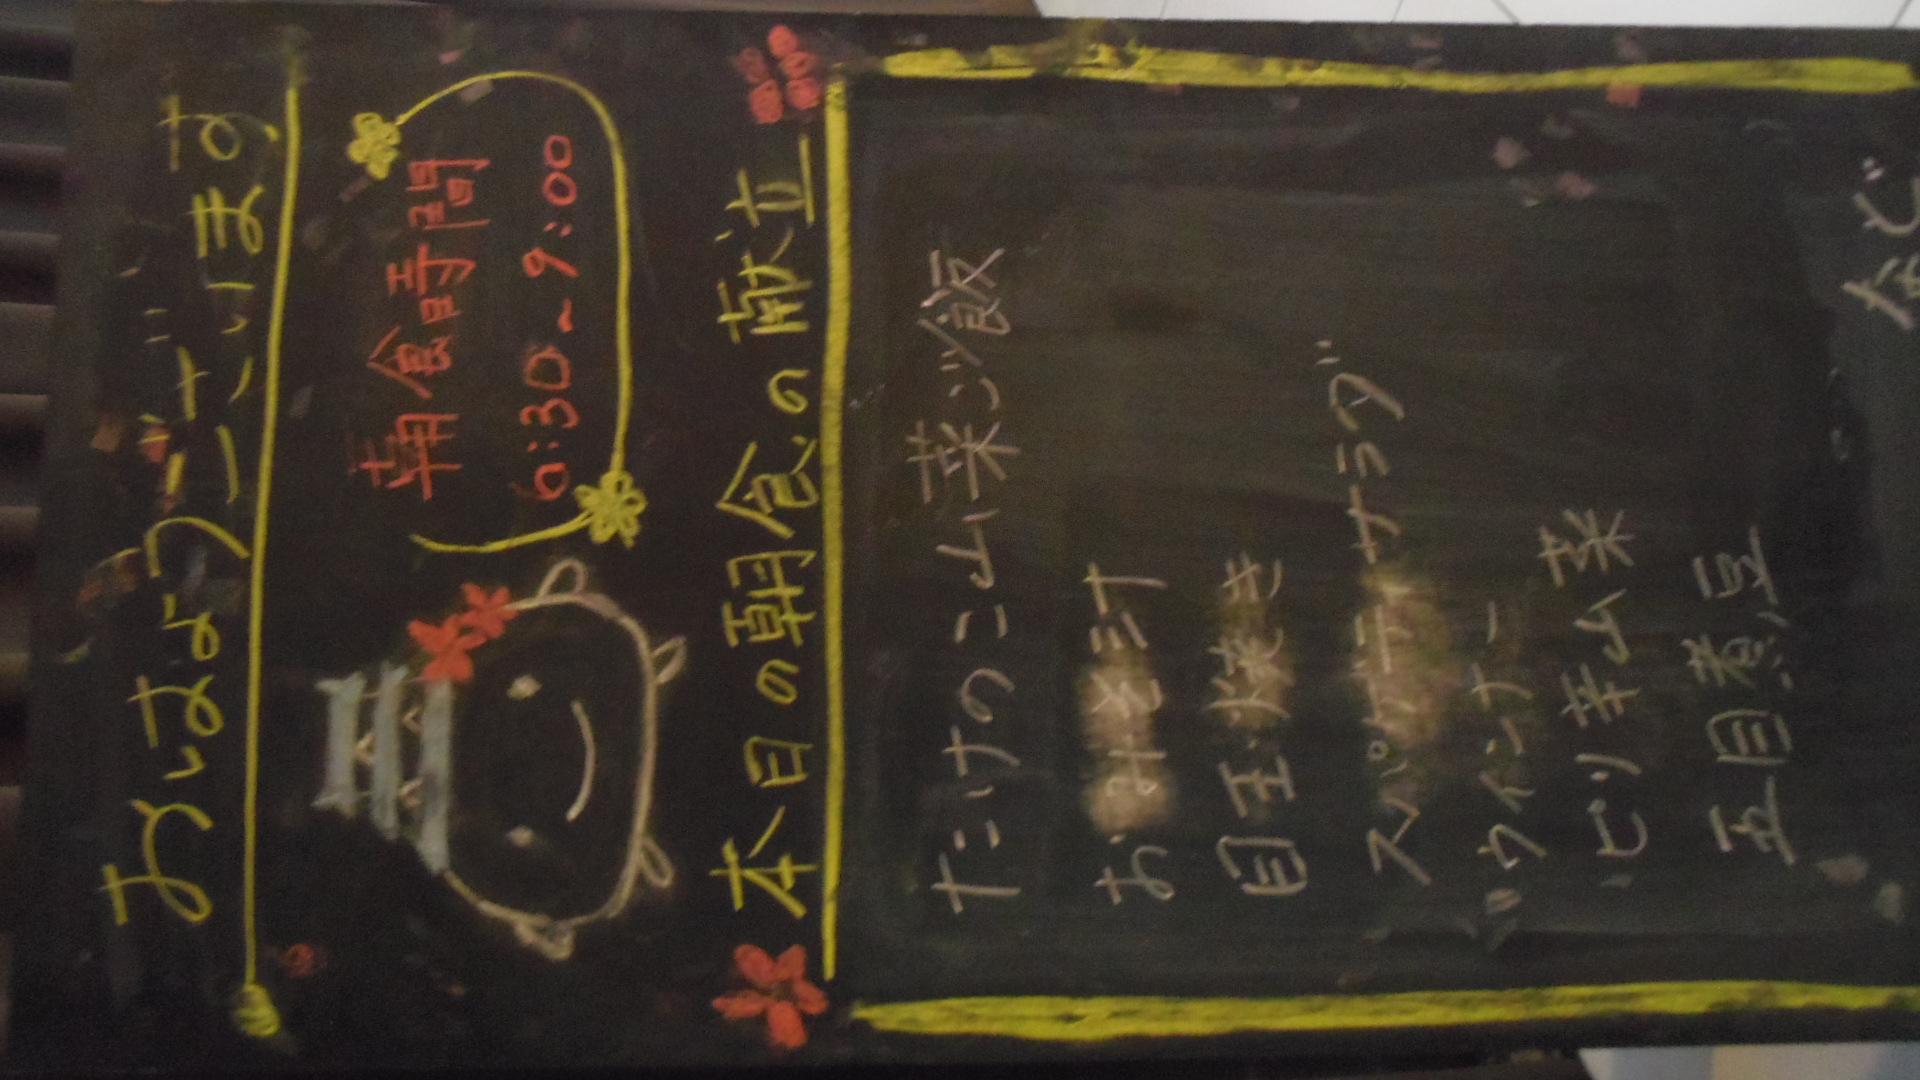 おはようございます
朝食時間
6:30~9:00
本日の朝食の献立
たけのこ山菜ツ飯
おみそ汁
目玉焼き
スパゲティサラダ
ウインナー
ピリ辛山菜
五目煮豆
など